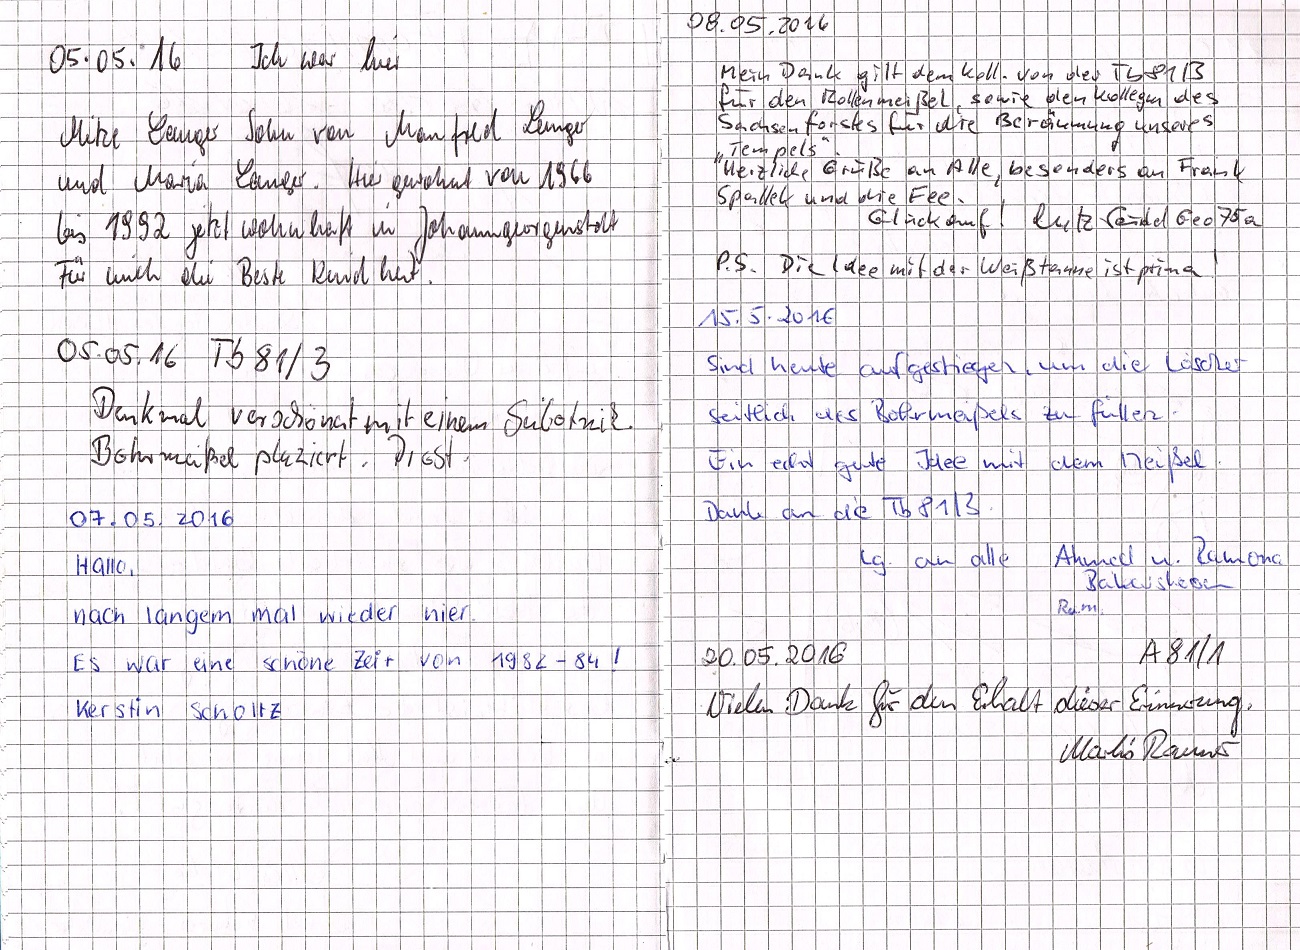 05.05.16 Ich war hier
Mike Langer Sohn von Manfred Langer
und Maria Langer. Hier gewohnt von 1966
bis 1992 jetzt wohnhaft in Johanngeorgenstadt
Für mich die Beste Kindheit.
05.05.16 Tb 81/3
Denkmal verschönert mit einem Subotnik.
Bohrmeißel plaziert. Prost.
07.05.2016
Hallo,
nach langem mal wieder hier.
Es war eine schöne Zeit von 1982-84!
Kerstin Scholtz
08.05.2016
Mein Dank gilt dem Koll. von der Tb 81/3
für den Rollenmeißel, sowie den Kollegen des
Sachsenforstes für die Beräumung unseres
„Tempels".
Herzliche Grüße an Alle, besonders an Frank
Spallek und die Fee.
Glückauf! Lutz Geo 75a
P.S. Die Idee mit der Weißtanne ist prima!
15.5.2016
Sind heute aufgestiegen, um die Löcher
seitlich des Bohrmeißels zu füllen.
Ein echt gute Idee mit dem Meißel.
Dank an die Tb 81/3.
Lg. an alle Ahmed u. Ramona
Ram.
20.05.2016 A 81/1
Vielen Dank für den Erhalt dieser Erinnerung.